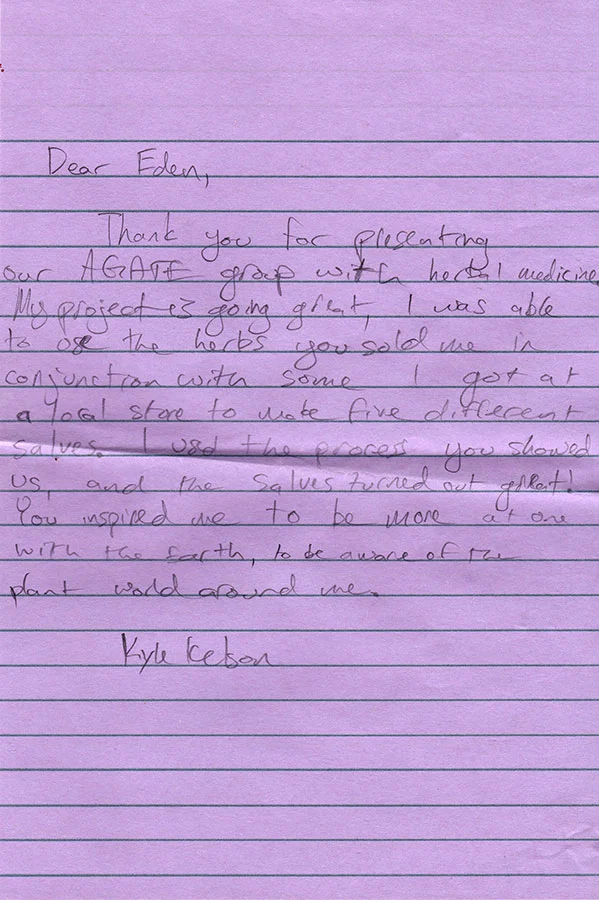 Dear Eden,
Thank you for presenting
our AGATE group with herbal medicine.
My project is going great, I was able
to use the herbs you sold me in
conjunction with some I got at
a local store to make five different
salves. I used the process you showed
us, and the salves turned out great!
You inspired me to be more at one
with the earth, to be aware of the
plant world around me.
Kyle